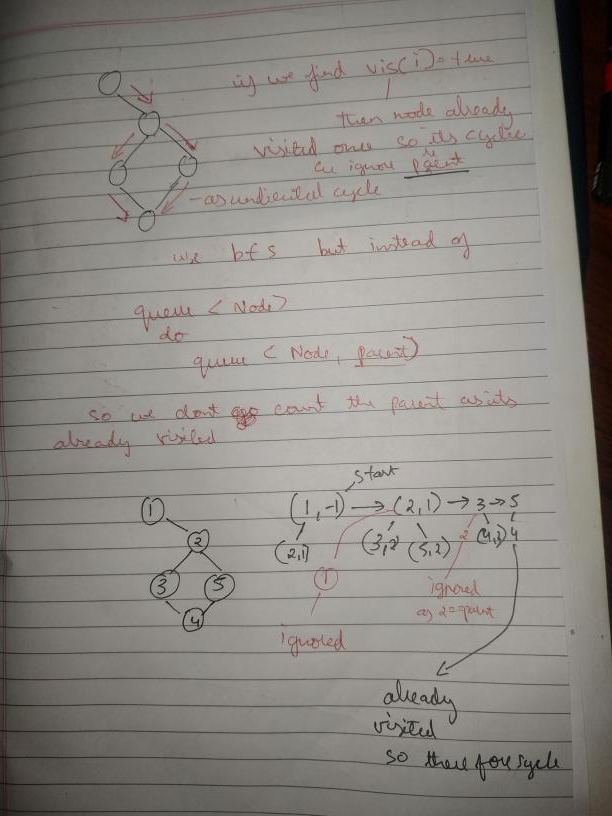 if we find vis(i)=true
then node already
visited once so its cyclic
ignore parent
- as undirected cycle
use bfs but instead of
queue < Node>
do
queue < Node, parent)
so we dont count the parent as its
already visited
start
(1,-1) → (2,1) → 3 → 5
(2,1) (3,2) (5,2) 2 (4,3) 4
1
2
3 5
4
1
ignored
ignored
as 2=parent
already
visited
so therefore cycle